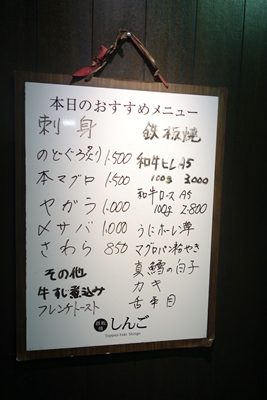 本日のおすすめメニュー
刺身
のどぐろ炙り 1500
本マグロ 1,500
ヤガラ 1,000
〆サバ 1,000
さわら 850
その他
牛すじ煮込み
フレンチトースト
鉄板焼
和牛ヒレA5
100g 3,000
和牛ロースA5
100g 2,800
うにホーレン草
マグロパン粉やき
真鱈の白子
カキ
舌平目
しんご
Teppan Yaki Shingo